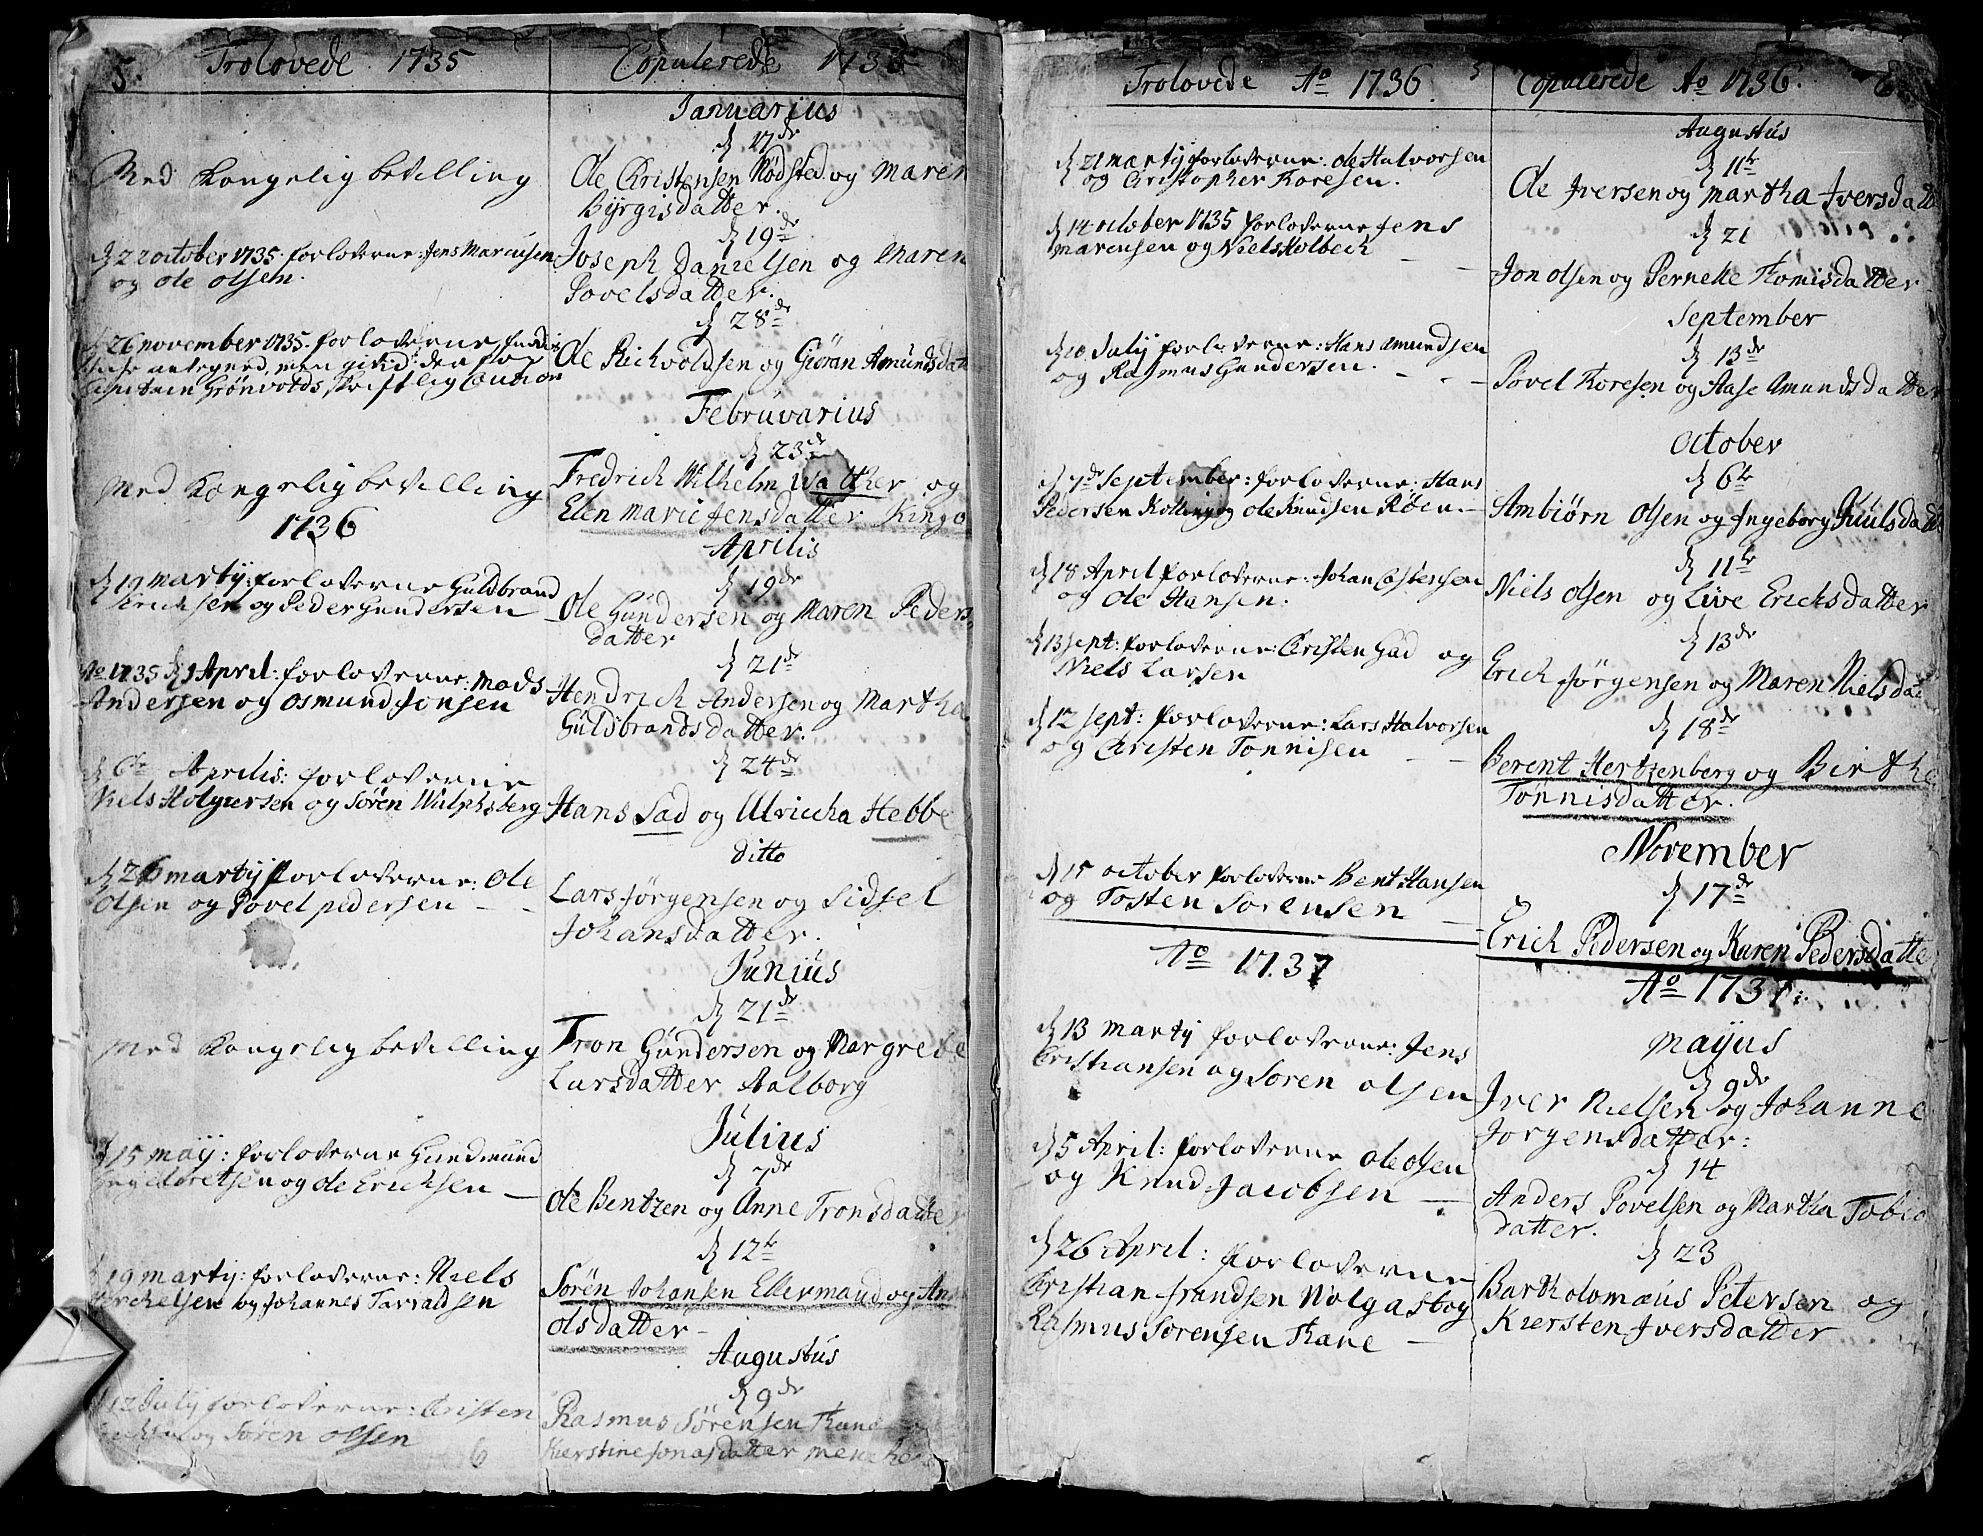 5. Trolovede 1735
Med Kongelig bevilling
d 22 october 1735. forloverne Jens Marcusen
og Ole Olsen.
d 26 november 1735. forloverne
antegned, men givid derfor
Capitain Grönvolds skriftlig Caution
Med Kongelig bevilling
1736
d 19 martij: forloverne Guldbrand
Erichsen og Peder Gundersen
Ao 1735 d 9 April: forloverne: Mads
Andersen og Osmund Jonsen
d 6te Aprilis: forloverne
Niels Holgiersen og Sören Wulphsberg
d 26 martij forloverne: Ole
Olsen og Povel pedersen
Med Kongelig bevilling
d 15 maij: forloverne Gundmund
Ingebretsen og Ole Ericksen
d 19 martij: forloverne: Niels
og Johannes Tarraldsen
d 12 Julij forloverne: Christen
og Sören Olsen
6
Copulerede 1736
Januarius
d 17de
Ole Christensen Rödsted og Maren
Byrgisdatter.
d 19de
Joseph Danielsen og Maren
Povelsdatter.
d 28de
Ole Richvoldsen og Giöran Amunds dat
Februvarius
d 23de
Fredrich Wilhelm Walther og
Elen Marie Jensdatter Kingo
Aprilis
d 19de
Ole Gundersen og Maren Peders
datter
d 21de
Hendrich Andersen og Martha
Guldsbrandsdatter.
d 24de
Hans Sad og Ulriccha Hebbe
ditto
Lars Jörgensen og Sidsel
Johansdatter.
Junius
d 21de
Tron Gundersen og Margrete
Larsdatter Aalborg
Julius
d 7de
Ole Bentzen og Anne Tronsdatter
d 12te
Sörén Johansen Ellermand og An
Olsdatter
Augustus
d 9de
Rasmus Sörensen Thane
Kierstine Jonasdatter
Trolovede Ao 1736.
d 21 martij forloverne: Ole Halvorsen
og Christopher Toresen.
d 14 october 1735 forloverne Jens
Marcusen og Niels Holbech
d 10 Julij forloverne: Hans Amundsen
og Rasmus Gundersen.
d 7de September: forloverne: Hans
Pedersen Kölling og Ole Knudsen Röen
d 18 April forloverne: Johan Castensen
og Ole Hansen.
d 13 sept: forloverne: Christen Gad og
Niels Larsen
d 12 sept: forloverne: Lars Halvorsen
og Christen Tonnisen
d 15 october forloverne Bent Hansen
og Tosten Sörensen
Ao 1737
d 13 Martij forloverne: Jens
Christiansen og Soren Olsen
d 5 April: forloverne Ole Olsen
og Knud Jacobsen
d 26 April: forloverne
Christian Frandsen Wolgast og
Rasmus Sorensen Thane
Copulerede Ao 1736.
Augustus
d 11te
Ole Iversen og Martha Iversdatt
d 21
Jon Olsen og Pernelle Thomisdatter
September
d 13de
Povel Toresen og Aase Amundsdatter
October
d 6te
Ambiörn Olsen og Ingeborg Juulsdatt
d 11te
Niels Olsen og Live Ericksdatter
d 13de
Erich Jörgensen og Maren Nielsdat
d 18de
Berent Hertzenberg og Birthe
Tönnisdatter.
November
d 17de
Erich Pedersen og Karen Pedersdatte
Ao 1737:
Maijus
d 9de
Iver Nielsen og Johanne
Jorgensdatter:
d 14
Anders Povelsen og Martha Tobia
datter.
d 23
Bartholomæus Petersen og
Kiersten Iversdatter